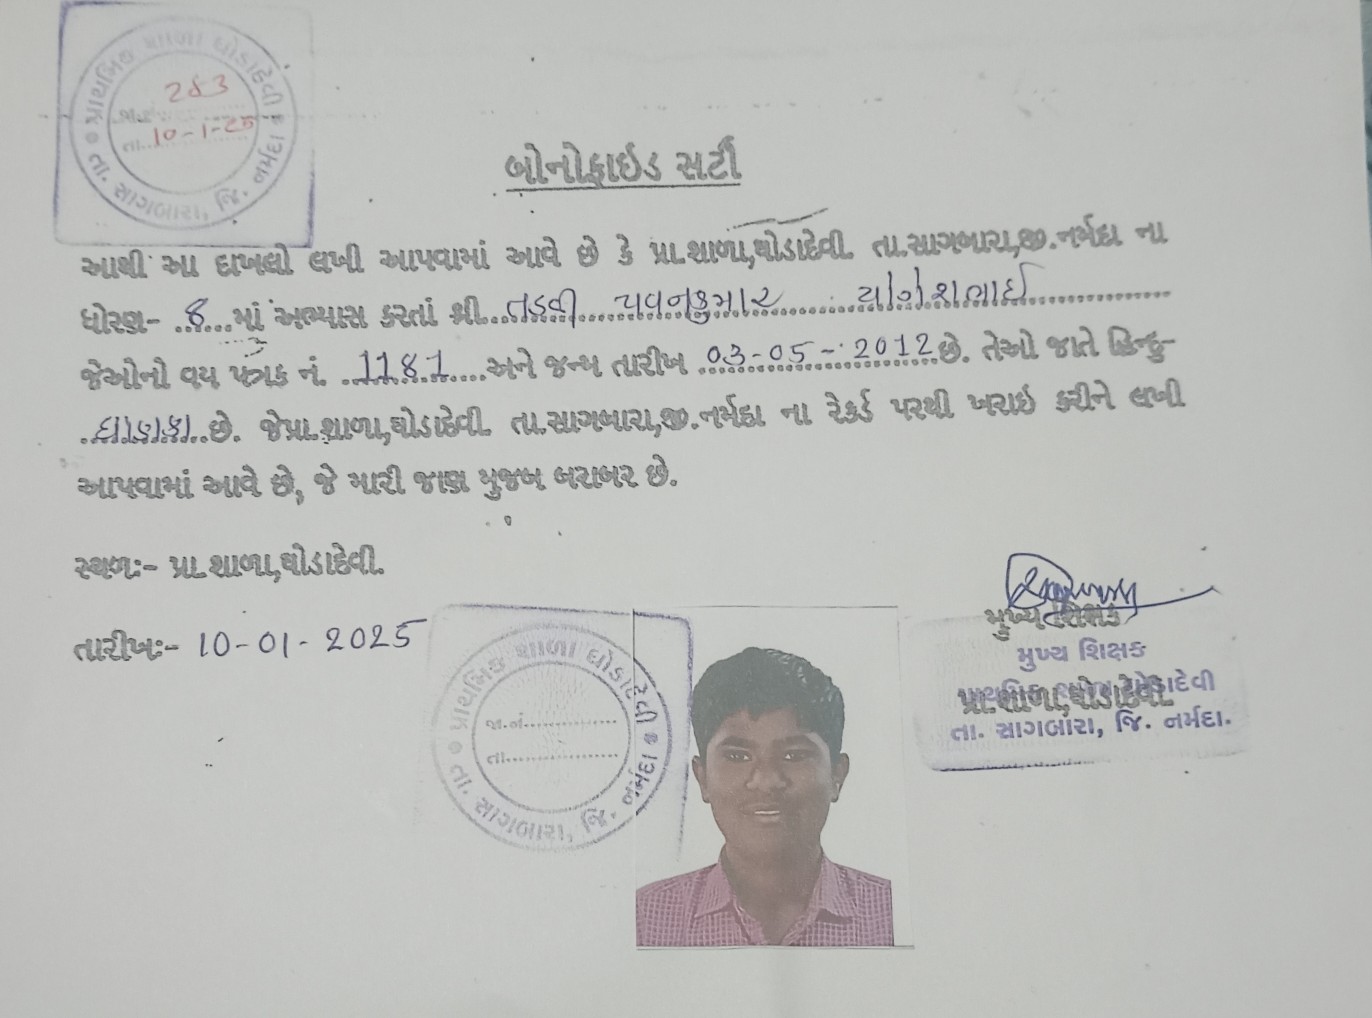 પ્રાથમિક શાળા ઘોડાદેવી
જા.નં. 283
તા. 10-1-25
તા. સાગબારા, જિ. નર્મદા
બોનોફાઇડ સર્ટી
આથી આ દાખલો લખી આપવામાં આવે છે કે પ્રા.શાળા,ઘોડાદેવી. તા.સાગબારા,જી.નર્મદા ના
ધોરણ- 8 માં અભ્યાસ કરતાં શ્રી. તડવી પવનકુમાર યોગેશભાઈ
જેઓનો વય પત્રક નં. 1181 અને જન્મ તારીખ 03-05-2012 છે. તેઓ જાતે હિન્દુ-
ધાણકા છે. જેપ્રા.શાળા,ઘોડાદેવી. તા.સાગબારા,જી.નર્મદા ના રેકર્ડ પરથી ખરાઇ કરીને લખી
આપવામાં આવે છે, જે મારી જાણ મુજબ બરાબર છે.
સ્થળઃ- પ્રા.શાળા,ઘોડાદેવી.
તારીખઃ- 10-01-2025
પ્રાથમિક શાળા ઘોડાદેવી
જા.નં.
તા.
તા. સાગબારા, જિ. નર્મદા
મુખ્ય શિક્ષક
મુખ્ય શિક્ષક
પ્રા.શાળા,ઘોડાદેવી.
તા. સાગબારા, જિ. નર્મદા.